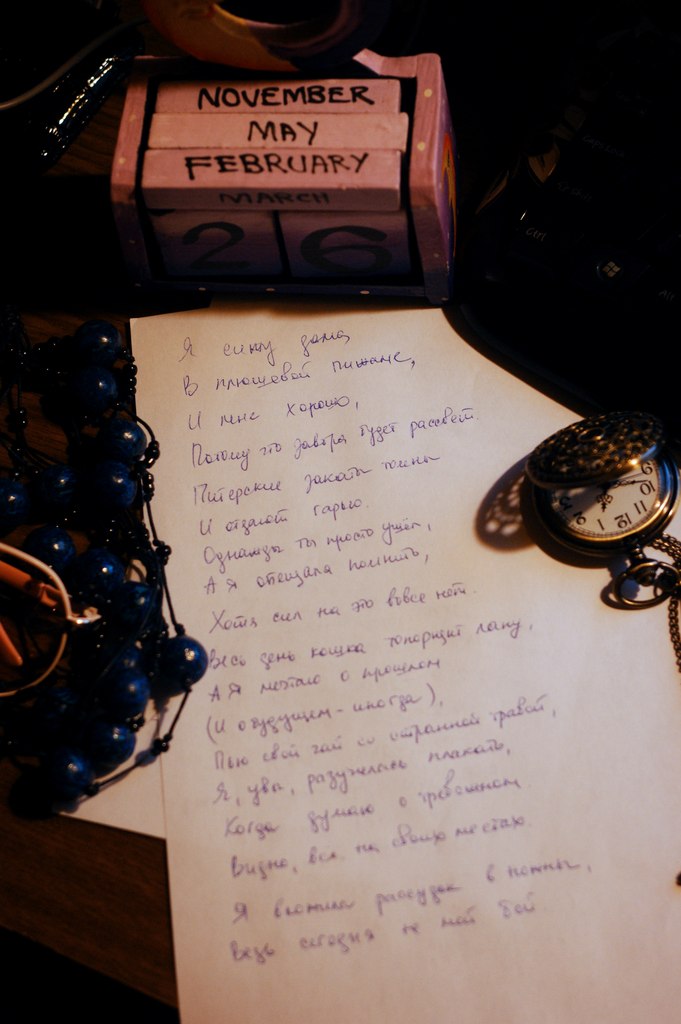 NOVEMBER
MAY
FEBRUARY
MARCH
26
Я сижу дома,
В плюшевой пижаме,
И мне хорошо,
Потому что завтра будет рассвет.
Питерские закаты темны
И отдают гарью.
Однажды ты просто ушёл,
А я обещала помнить,
Хотя сил на это вовсе нет.
Весь день кошка топорщит лапу,
А я мечтаю о прошлом
(И о будущем - иногда),
Пью свой чай со странной травой,
Я, увы, разучилась плакать,
Когда думаю о тревожном.
Видно, все на своих местах.
Я вложила рассудок в ножны,
Ведь сегодня не мой бой
ctrl
9
10
11
12
1